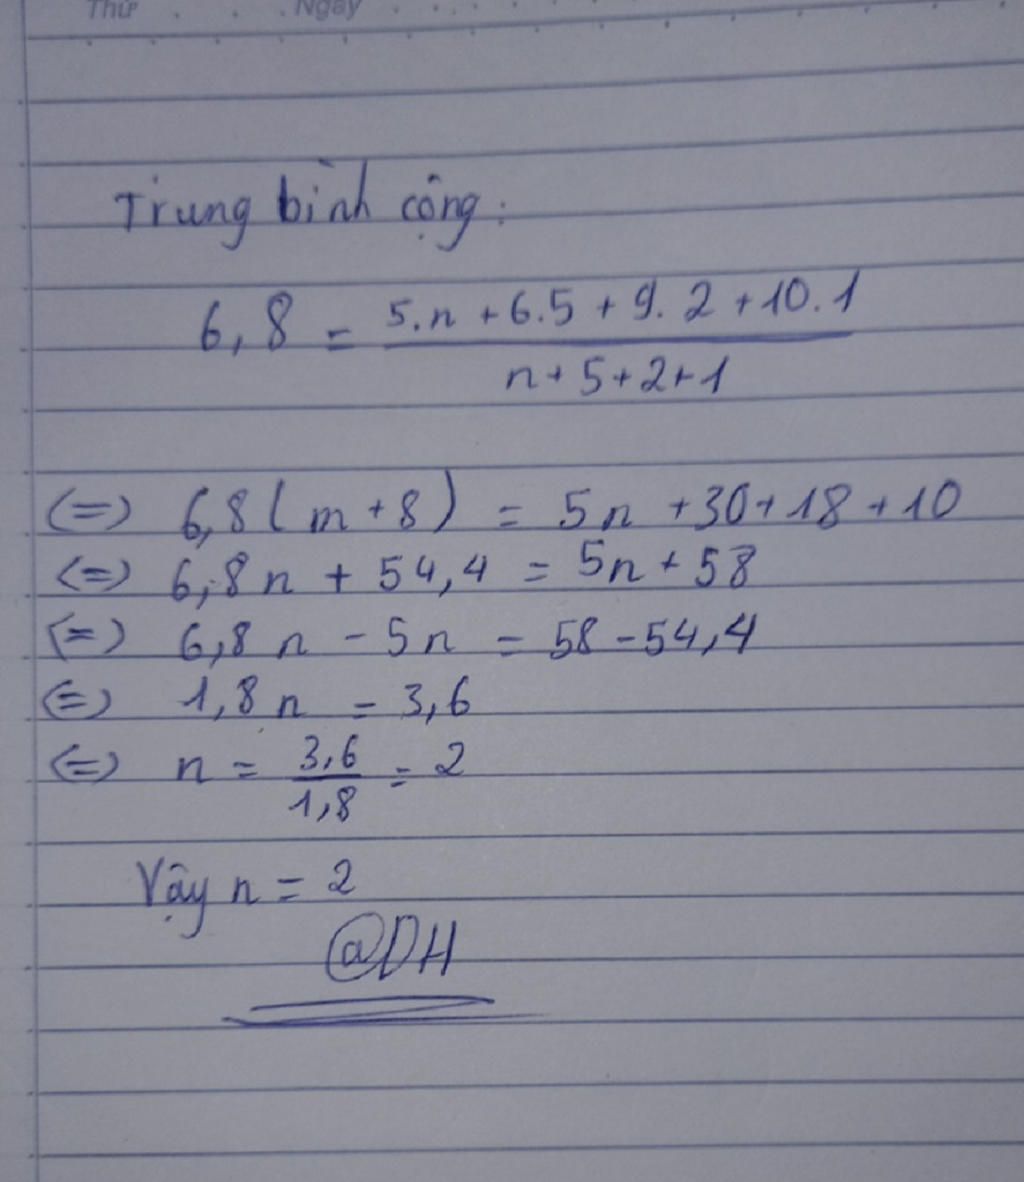 Thứ Ngày
Trung bình cộng:
6,8 = \frac{5.n + 6.5 + 9.2 + 10.1}{n + 5 + 2 + 1}
(=) 6,8 ( m + 8 ) = 5n + 30 + 18 + 10
(=) 6,8n + 54,4 = 5n + 58
(=) 6,8n - 5n = 58 - 54,4
(=) 1,8n = 3,6
(=) n = \frac{3,6}{1,8} = 2
Vậy n = 2
@DH